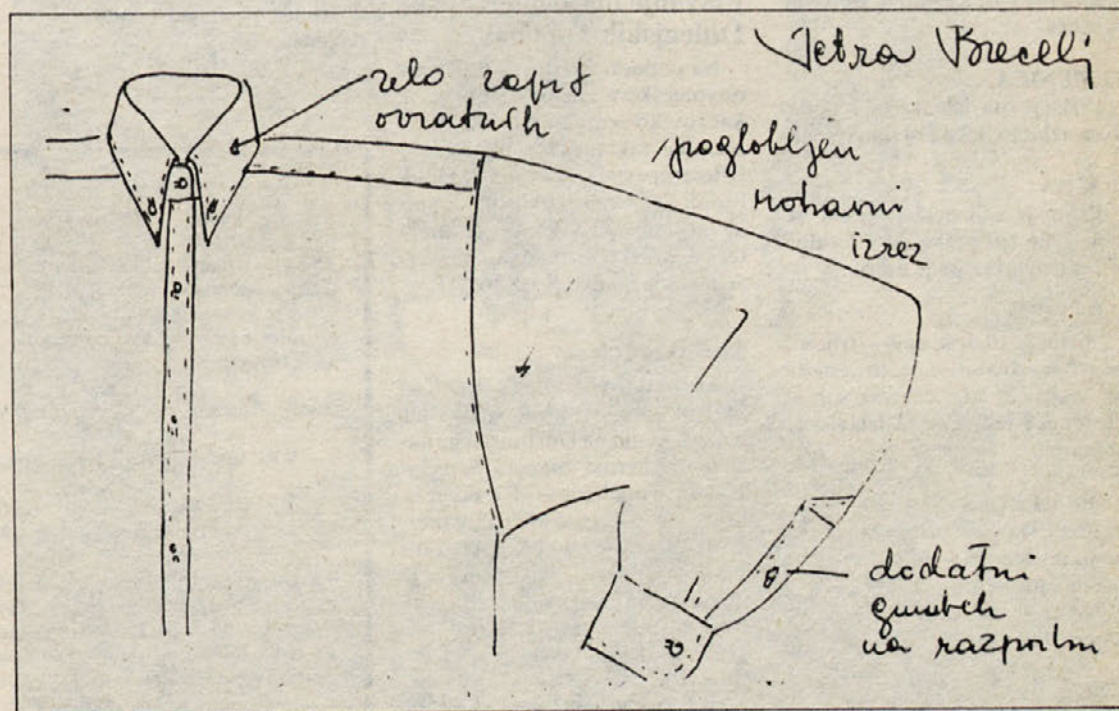 Petra Brecelj
zelo zaprt
ovratnik
poglobljen
rokavni
izrez
dodatni
gumbek
na razporku